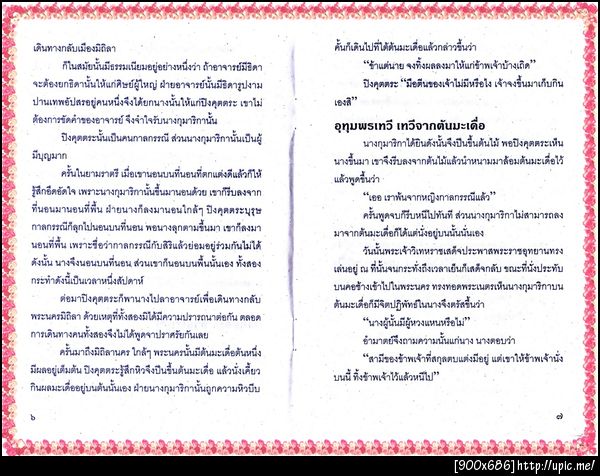 เดินทางกลับเมืองมิถิลา
ก็ในสมัยนั้นมีธรรมเนียมอยู่อย่างหนึ่งว่า ถ้าอาจารย์มีธิดา
จะต้องยกธิดานั้นให้แก่ศิษย์ผู้ใหญ่ ฝ่ายอาจารย์นั้นมีธิดารูปงาม
ปานเทพอัปสรอยู่คนหนึ่งจึงได้ยกนางนั้นให้แก่ปิงคุตตระ เขาไม่
ต้องการขัดคำของอาจารย์ จึงจำใจรับนางกุมาริกานั้น
ปิงคุตตระนั้นเป็นคนกาลกรรณี ส่วนนางกุมาริกานั้นเป็นผู้
มีบุญมาก
ครั้นในยามราตรี เมื่อเขานอนบนที่นอนที่ตกแต่งดีแล้วก็ให้
รู้สึกอึดอัดใจ เพราะนางกุมาริกานั้นขึ้นมานอนด้วย เขาก็รีบลงจาก
ที่นอนมานอนที่พื้น ฝ่ายนางก็ลงมานอนใกล้ๆ ปิงคุตตระบุรุษ
กาลกรรณีก็ลุกไปนอนบนที่นอน พอนางลุกตามขึ้นมา เขาก็ลงมา
นอนที่พื้น เพราะชื่อว่ากาลกรรณีกับสิริแล้วย่อมอยู่ร่วมกันไม่ได้
ดังนั้น นางจึงนอนบนที่นอน ส่วนเขาก็นอนบนพื้นนั้นเอง ทั้งสอง
กระทำดังนี้เป็นเวลาหนึ่งสัปดาห์
ต่อมาปิงคุตตระก็พานางไปลาอาจารย์เพื่อเดินทางกลับ
พระนครมิถิลา ด้วยเหตุที่ทั้งสองมิได้มีความปรารถนาต่อกัน ตลอด
การเดินทางคนทั้งสองจึงไม่ได้พูดจาปราศรัยกันเลย
ครั้นมาถึงมิถิลานคร ใกล้ๆ พระนครนั้นมีต้นมะเดื่อต้นหนึ่ง
มีผลอยู่เต็มต้น ปิงคุตตระรู้สึกหิวจึงปีนขึ้นต้นมะเดื่อ แล้วนั่งเคี้ยว
กินผลมะเดื่ออยู่บนต้นนั้นเอง ฝ่ายนางกุมาริกานั้นถูกความหิวบีบ
๖
คั้นก็เดินไปที่ใต้ต้นมะเดื่อแล้วกล่าวขึ้นว่า
“ข้าแต่นาย จงทิ้งผลลงมาให้แก่ข้าเจ้าบ้างเถิด”
ปิงคุตตระ “มือตีนของเจ้าไม่มีหรือไง เจ้าจงขึ้นมาเก็บกิน
เองสิ”
อุทุมพรเทวี เทวีจากต้นมะเดื่อ
นางกุมาริกาได้ยินดังนั้นจึงปีนขึ้นต้นไม้ พอปิงคุตตระเห็น
นางขึ้นมา เขาจึงรีบลงจากต้นไม้แล้วนำหนามมาล้อมต้นมะเดื่อไว้
แล้วพูดขึ้นว่า
“เออ เราพ้นจากหญิงกาลกรรณีแล้ว”
ครั้นพูดจบก็รีบหนีไปทันที ส่วนนางกุมาริกาไม่สามารถลง
มาจากต้นมะเดื่อก็ได้แต่นั่งอยู่บนนั้นนั่นเอง
วันนั้นพระเจ้าวิเทหราชเสด็จประพาสพระราชอุทยานทรง
เล่นอยู่ ณ ที่นั้นจนกระทั่งถึงเวลาเย็นก็เสด็จกลับ ขณะที่นั่งประทับ
บนคอช้างเข้าไปในพระนคร ทรงทอดพระเนตรเห็นนางกุมาริกาบน
ต้นมะเดื่อก็มีจิตปฏิพัทธ์ในนางจึงตรัสขึ้นว่า
“นางผู้นั้นมีผู้หวงแหนหรือไม่”
อำมาตย์จึงถามความนั้นแก่นาง นางตอบว่า
“สามีของข้าพเจ้าที่สกุลตบแต่งมีอยู่ แต่เขาให้ข้าพเจ้านั่ง
บนนี้ ทิ้งข้าพเจ้าไว้แล้วหนีไป”
๗
[900x686] http://upic.me/